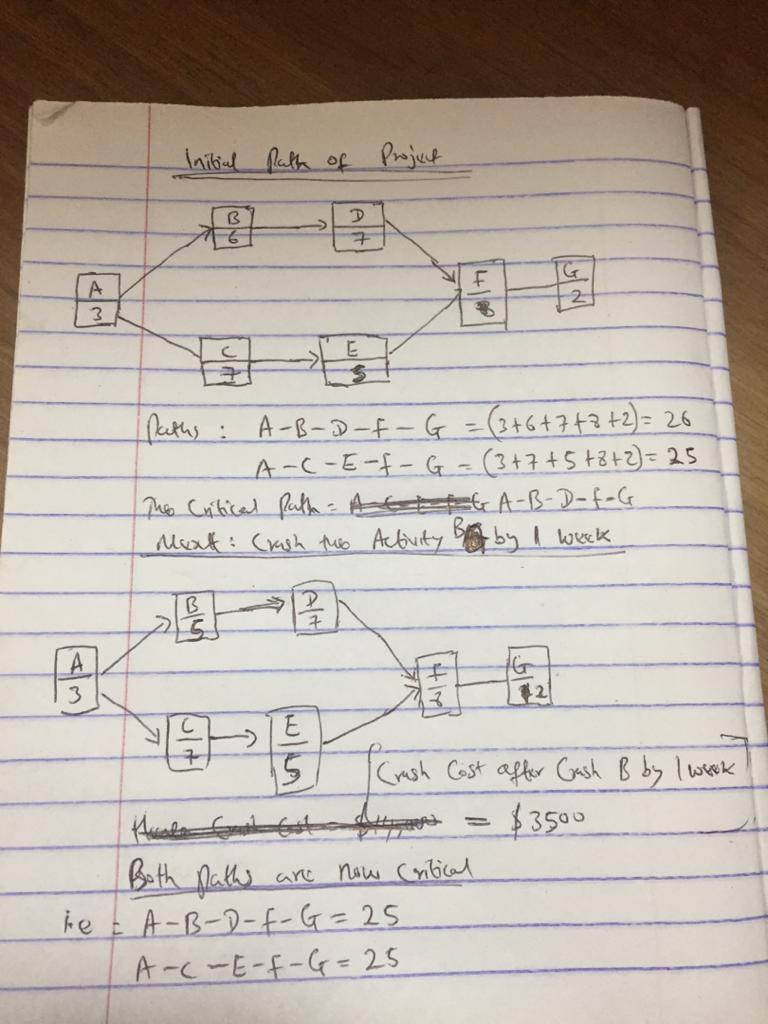 Initial Path of Project
B
6
D
7
A
3
F
8
G
2
C
7
E
5
Paths : A-B-D-F-G = (3+6+7+8+2) = 26
A-C-E-F-G = (3+7+5+8+2) = 25
The Critical Path = A-C-E-F-G A-B-D-F-G
Next : Crash the Activity B by 1 week
B
5
D
7
A
3
F
8
G
2
C
7
E
5
Crash Cost after Crash B by 1 week
= $3500
Both paths are now critical
i.e = A-B-D-F-G = 25
A-C-E-F-G = 25